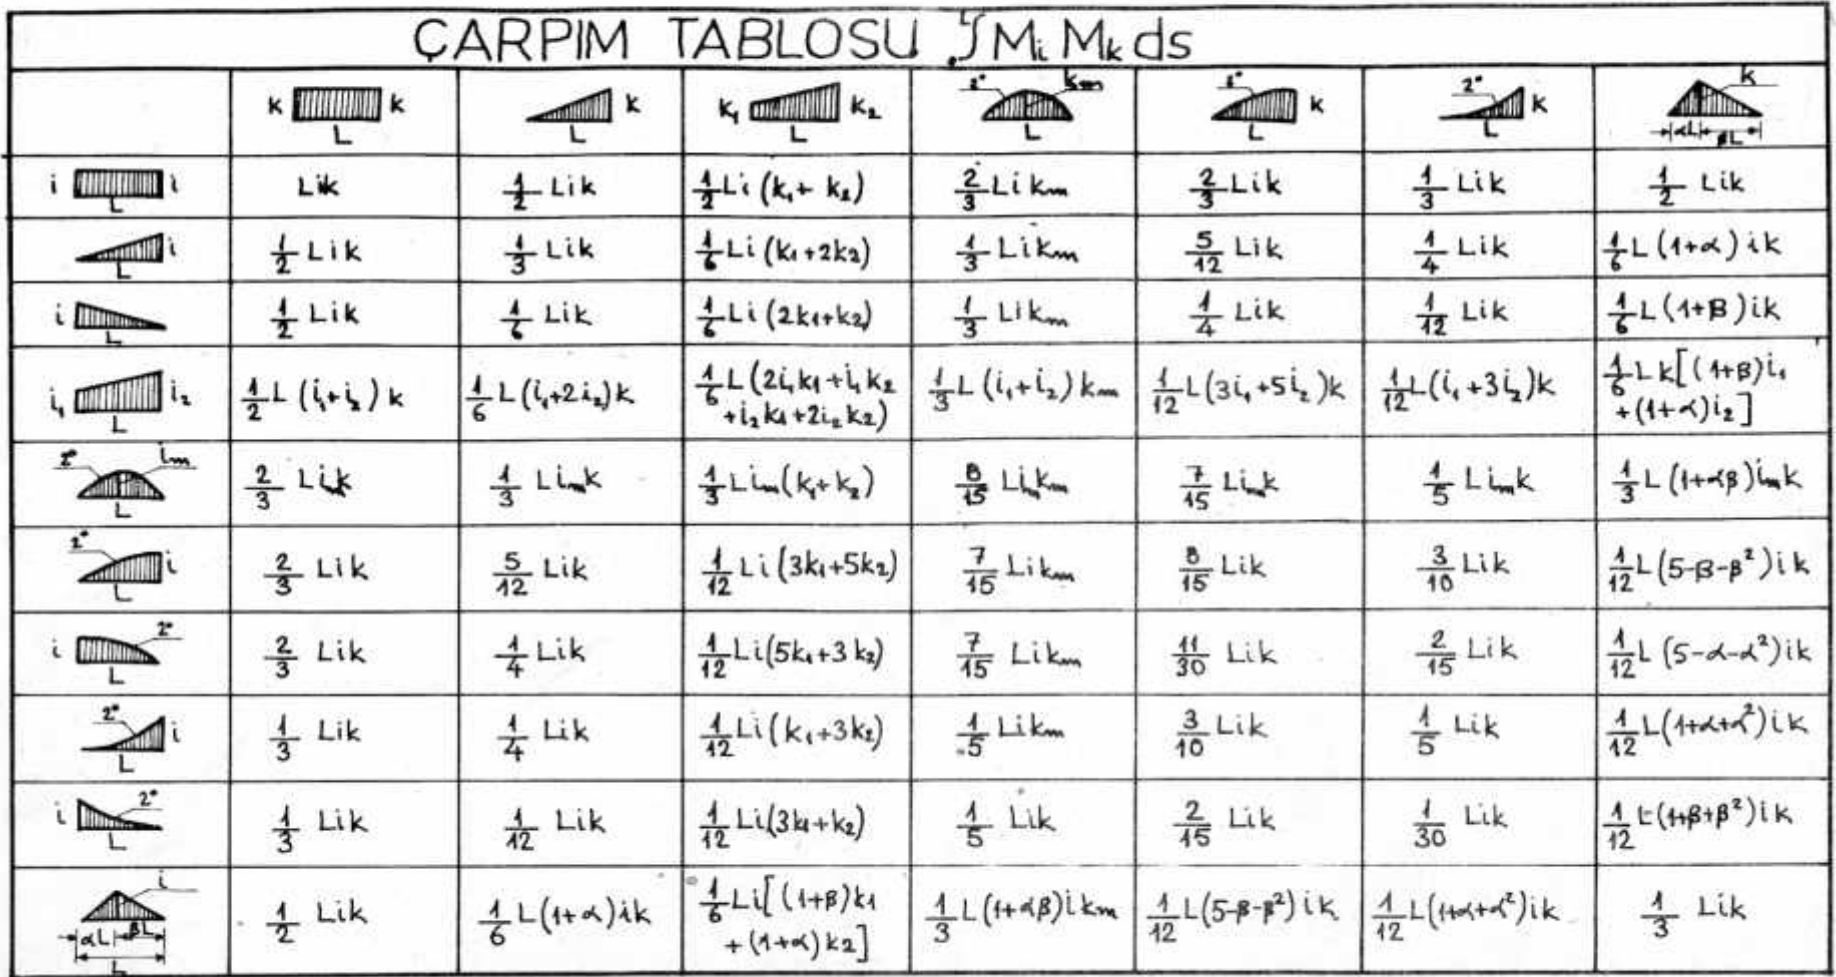 ÇARPIM TABLOSU ∫ Mi Mk ds
k k L
L k
k₁ k₂ L
2° km L
2° k L
2° k L
k αL βL
i i L
Lik
1/2 Lik
1/2 Li (k₁ + k₂)
2/3 Li km
2/3 Lik
1/3 Lik
1/2 Lik
i L
1/2 Lik
1/3 Lik
1/6 Li (k₁+2k₂)
1/3 Likm
5/12 Lik
1/4 Lik
1/6 L (1+α) ik
i L
1/2 Lik
1/6 Lik
1/6 Li (2k₁+k₂)
1/3 Likm
1/4 Lik
1/12 Lik
1/6 L (1+β) ik
i₁ i₂ L
1/2 L (i₁+i₂) k
1/6 L (i₁+2i₂) k
1/6 L (2i₁k₁ + i₁k₂
+i₂k₁+2i₂k₂)
1/3 L (i₁+i₂) km
1/12 L (3i₁+5i₂) k
1/12 L (i₁+3i₂) k
1/6 L k [(1+β) i₁
+(1+α) i₂]
2° im L
2/3 Limk
1/3 Limk
1/3 Lim (k₁+k₂)
8/15 Limkm
7/15 Limk
1/5 Limk
1/3 L (1+αβ) imk
2° i L
2/3 Lik
5/12 Lik
1/12 Li (3k₁+5k₂)
7/15 Likm
8/15 Lik
3/10 Lik
1/12 L (5-β-β²) ik
i 2° L
2/3 Lik
1/4 Lik
1/12 Li (5k₁+3k₂)
7/15 Likm
11/30 Lik
2/15 Lik
1/12 L (5-α-α²) ik
2° i L
1/3 Lik
1/4 Lik
1/12 Li (k₁+3k₂)
1/5 Likm
3/10 Lik
1/5 Lik
1/12 L (1+α+α²) ik
i 2° L
1/3 Lik
1/12 Lik
1/12 Li (3k₁+k₂)
1/5 Lik
2/15 Lik
1/30 Lik
1/12 L (1+β+β²) ik
i αL βL L
1/2 Lik
1/6 L (1+α) ik
1/6 Li [(1+β) k₁
+ (1+α) k₂]
1/3 L (1+αβ) ikm
1/12 L (5-β-β²) ik
1/12 L (1+α+α²) ik
1/3 Lik